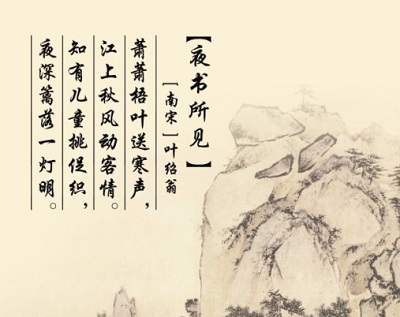 【夜书所见】
［南宋］叶绍翁
萧萧梧叶送寒声，
江上秋风动客情。
知有儿童挑促织，
夜深篱落一灯明。